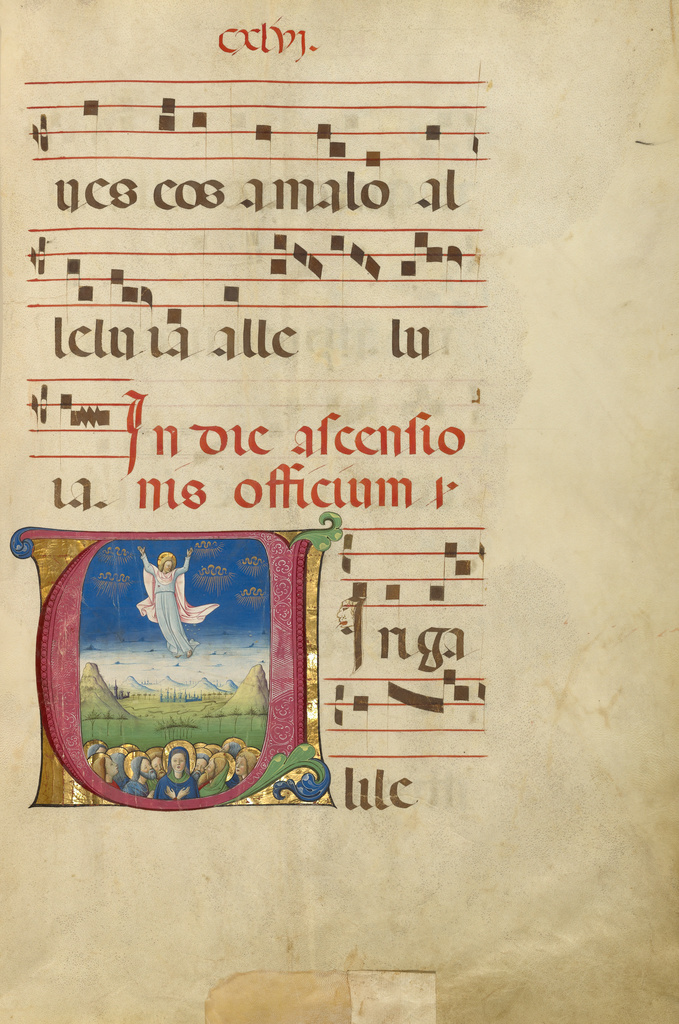 cxlvj.
nes eos a malo al
leluia alle lu
In die ascensio
ia. nis officium
Viri Ga
lile